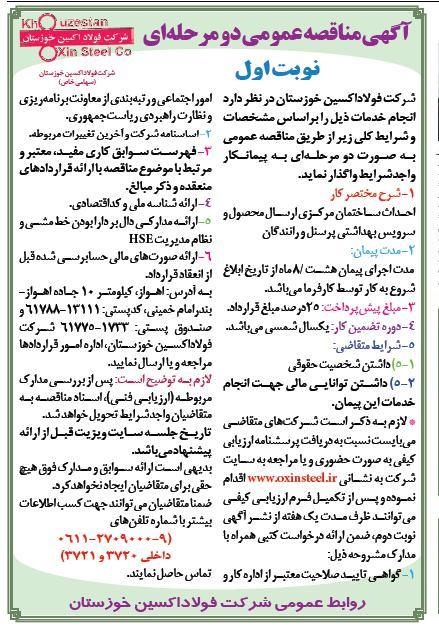 Khouzestan
شرکت فولاد اکسین خوزستان
Oxin Steel Co
شرکت فولاد اکسین خوزستان
(سهامی خاص)
آگهی مناقصه عمومی دو مرحله‌ای
نوبت اول
شرکت فولاد اکسین خوزستان در نظر دارد
انجام خدمات ذیل را بر اساس مشخصات
و شرایط کلی زیر از طریق مناقصه عمومی
به صورت دو مرحله‌ای به پیمانکار
واجد شرایط واگذار نماید.
۱- شرح مختصر کار
احداث ساختمان مرکزی ارسال محصول و
سرویس بهداشتی پرسنل و رانندگان
۲- مدت پیمان:
مدت اجرای پیمان هشت /۸ ماه از تاریخ ابلاغ
شروع به کار توسط کارفرما می‌باشد.
۳- مبلغ پیش پرداخت: ۲۵ درصد مبلغ قرارداد.
۴- دوره تضمین کار: یکسال شمسی می‌باشد.
۵- شرایط متقاضی:
۵-۱) داشتن شخصیت حقوقی
۵-۲) داشتن توانایی مالی جهت انجام
خدمات این پیمان.
* لازم به ذکر است شرکت‌های متقاضی
می‌بایست نسبت به دریافت پرسشنامه ارزیابی
کیفی به صورت حضوری و یا مراجعه به سایت
شرکت به نشانی www.oxinsteel.ir اقدام
نموده و پس از تکمیل فرم ارزیابی کیفی
می‌توانند ظرف مدت یک هفته از نشر آگهی
نوبت دوم، ضمن ارائه درخواست کتبی همراه با
مدارک مشروحه ذیل:
۱- گواهی تایید صلاحیت معتبر از اداره کار و
امور اجتماعی و رتبه‌بندی از معاونت برنامه‌ریزی
و نظارت راهبردی ریاست جمهوری.
۲- اساسنامه شرکت و آخرین تغییرات مربوطه.
۳- فهرست سوابق کاری مفید، معتبر و
مرتبط با موضوع مناقصه با ارائه قراردادهای
منعقده و ذکر مبالغ.
۴- ارائه شناسه ملی و کد اقتصادی.
۵- ارائه مدارکی دال بر دارا بودن خط مشی و
نظام مدیریت HSE
۶- ارائه صورت‌های مالی حسابرسی شده قبل
از انعقاد قرارداد.
به آدرس: اهواز، کیلومتر ۱۰ جاده اهواز-
بندر امام خمینی، کدپستی: ۱۳۱۱۱-۶۱۷۸۸ و
صندوق پستی: ۱۷۳۳-۶۱۷۷۵ شرکت
فولاد اکسین خوزستان، اداره امور قراردادها
مراجعه و یا ارسال نمایید.
لازم به توضیح است: پس از بررسی مدارک
مربوطه (ارزیابی فنی)، اسناد مناقصه به
متقاضیان واجد شرایط تحویل خواهد شد.
تاریخ جلسه سایت ویزیت قبل از ارائه
پیشنهاد می‌باشد.
بدیهی است ارائه سوابق و مدارک فوق هیچ
حقی برای متقاضیان ایجاد نخواهد کرد.
ضمنا متقاضیان می‌توانند جهت کسب اطلاعات
بیشتر با شماره تلفن‌های
(۹-۲۷۰۹۰۰۰-۰۶۱۱
داخلی ۳۷۲۰ و ۳۷۲۱)
تماس حاصل نمایند.
روابط عمومی شرکت فولاد اکسین خوزستان